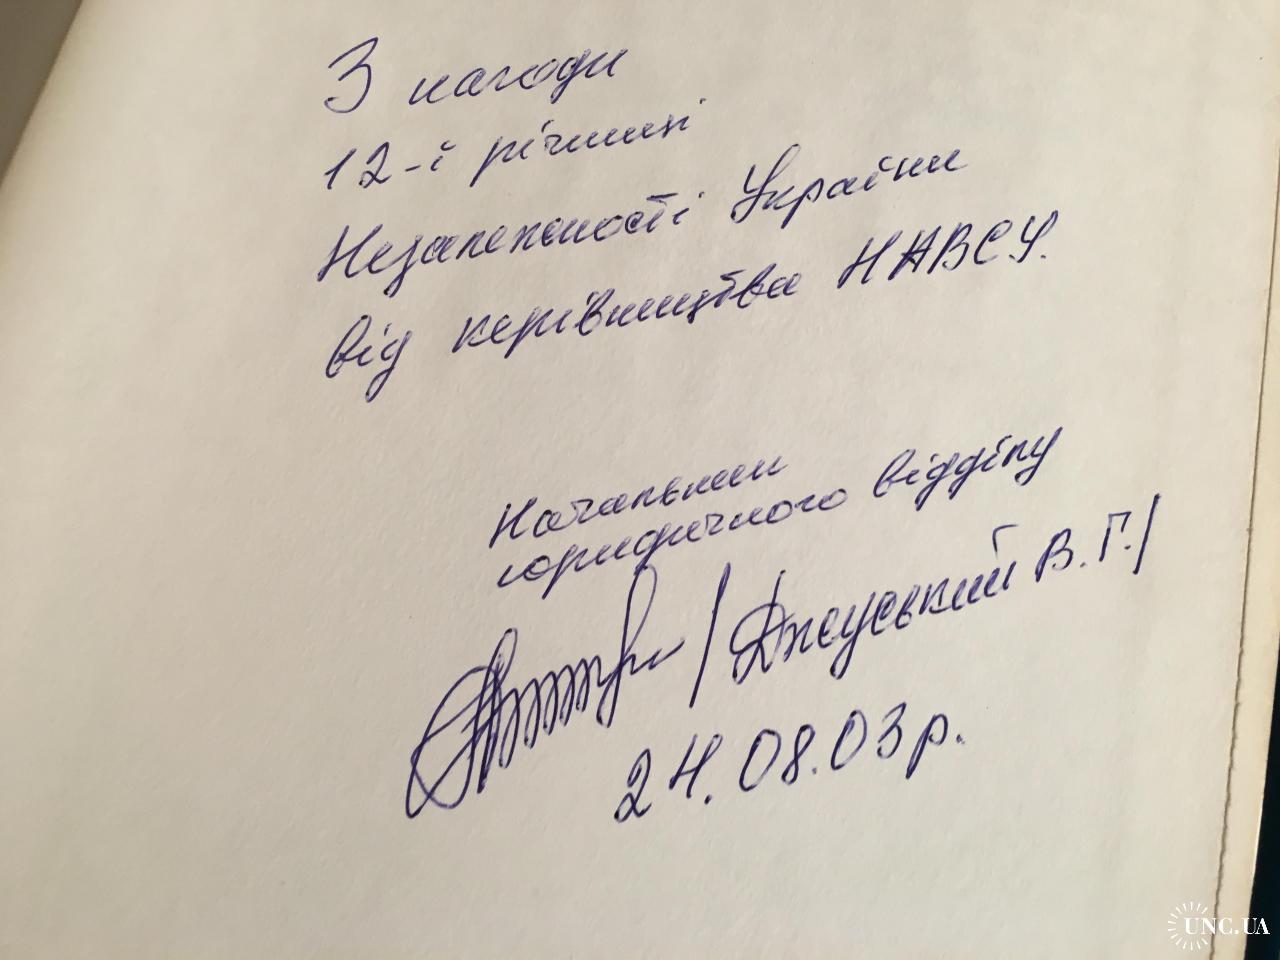 З нагоди
12-ї річниці
Незалежності України
від керівництва НАВСУ.
Начальник
юридичного відділу
/Джуський В.Г./
24.08.03р.
UNC.UA